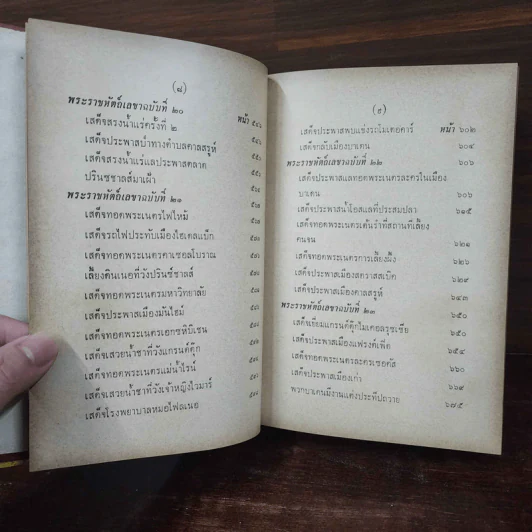 (๘)
พระราชหัตถ์เลขาฉบับที่ ๒๐
หน้า
เสด็จสรงน้ำแร่ครั้งที่ ๒
เสด็จประพาสป่าทางตำบลคาลสรูห์
เสด็จสรงน้ำแร่และประพาสตลาด
ปรินซชาลส์มาเฝ้า
พระราชหัตถ์เลขาฉบับที่ ๒๑
เสด็จทอดพระเนตรไฟไหม้
เสด็จรถไฟประทับเมืองไฮเดลเบิก
เสด็จทอดพระเนตรคาเซอลโบราณ
เลี้ยงดินเนอที่วังปรินซ์ชาลส์
เสด็จทอดพระเนตรมหาวิทยาลัย
เสด็จประพาสเมืองมันไฮม์
เสด็จทอดพระเนตรเอกซหิบิเชน
เสด็จเสวยน้ำชาที่วังแกรนด์ดุ๊ก
เสด็จทอดพระเนตรแม่น้ำไรน์
เสด็จเสวยน้ำชาที่วังเจ้าหญิงไวมาร์
เสด็จโรงพยาบาลหมอไฟลเนอ
(๙)
เสด็จประพาสพบแข่งรถโมเตอคาร์ หน้า ๖๐๒
เสด็จกลับเมืองบาเดน ๖๐๔
พระราชหัตถ์เลขาฉบับที่ ๒๒ ๖๐๖
เสด็จประพาสแลทอดพระเนตรละครในเมือง
บาเดน ๖๐๖
เสด็จประพาสน้ำโอสแลที่ประสมปลา ๖๑๕
เสด็จทอดพระเนตรเต้นรำที่สถานที่เลี้ยง
คนจน ๖๒๑
เสด็จทอดพระเนตรการเลี้ยงผึ้ง ๖๒๖
เสด็จประพาสเมืองสตราสสเบิค ๖๒๙
เสด็จประพาสเมืองคาลสรูห์ ๖๔๓
พระราชหัตถ์เลขาฉบับที่ ๒๓ ๖๕๐
เสด็จเยี่ยมแกรนด์ดุ๊กไมเคอลรุซเซีย ๖๕๐
เสด็จประพาสเมืองแฟรงค์เฟิต ๖๕๔
เสด็จทอดพระเนตรละครเซอคัส ๖๖๐
เสด็จประพาสเมืองเก่า ๖๖๙
พวกบาเดนมีงานแต่งประทีปถวาย ๖๗๕